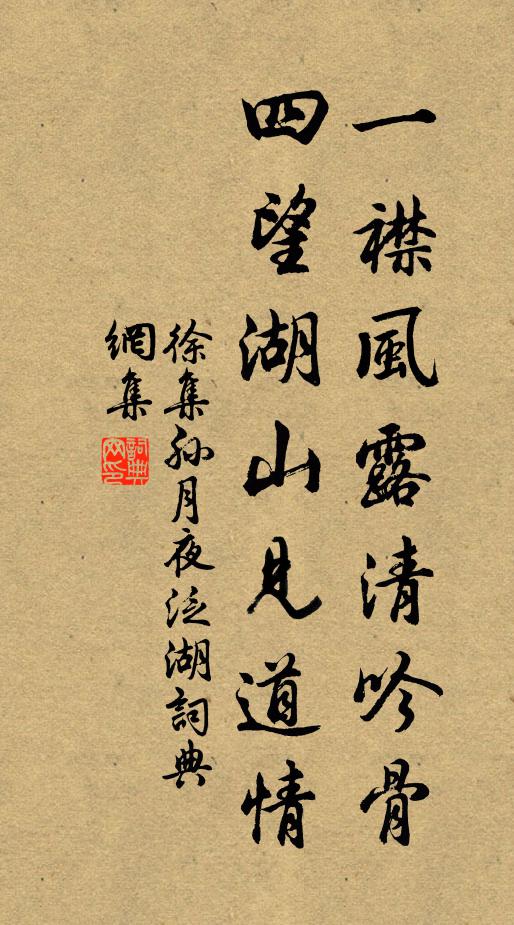 一襟風露清吟骨
四望湖山見道情
徐集孫月夜泛湖詞典
網集
詞典
网印